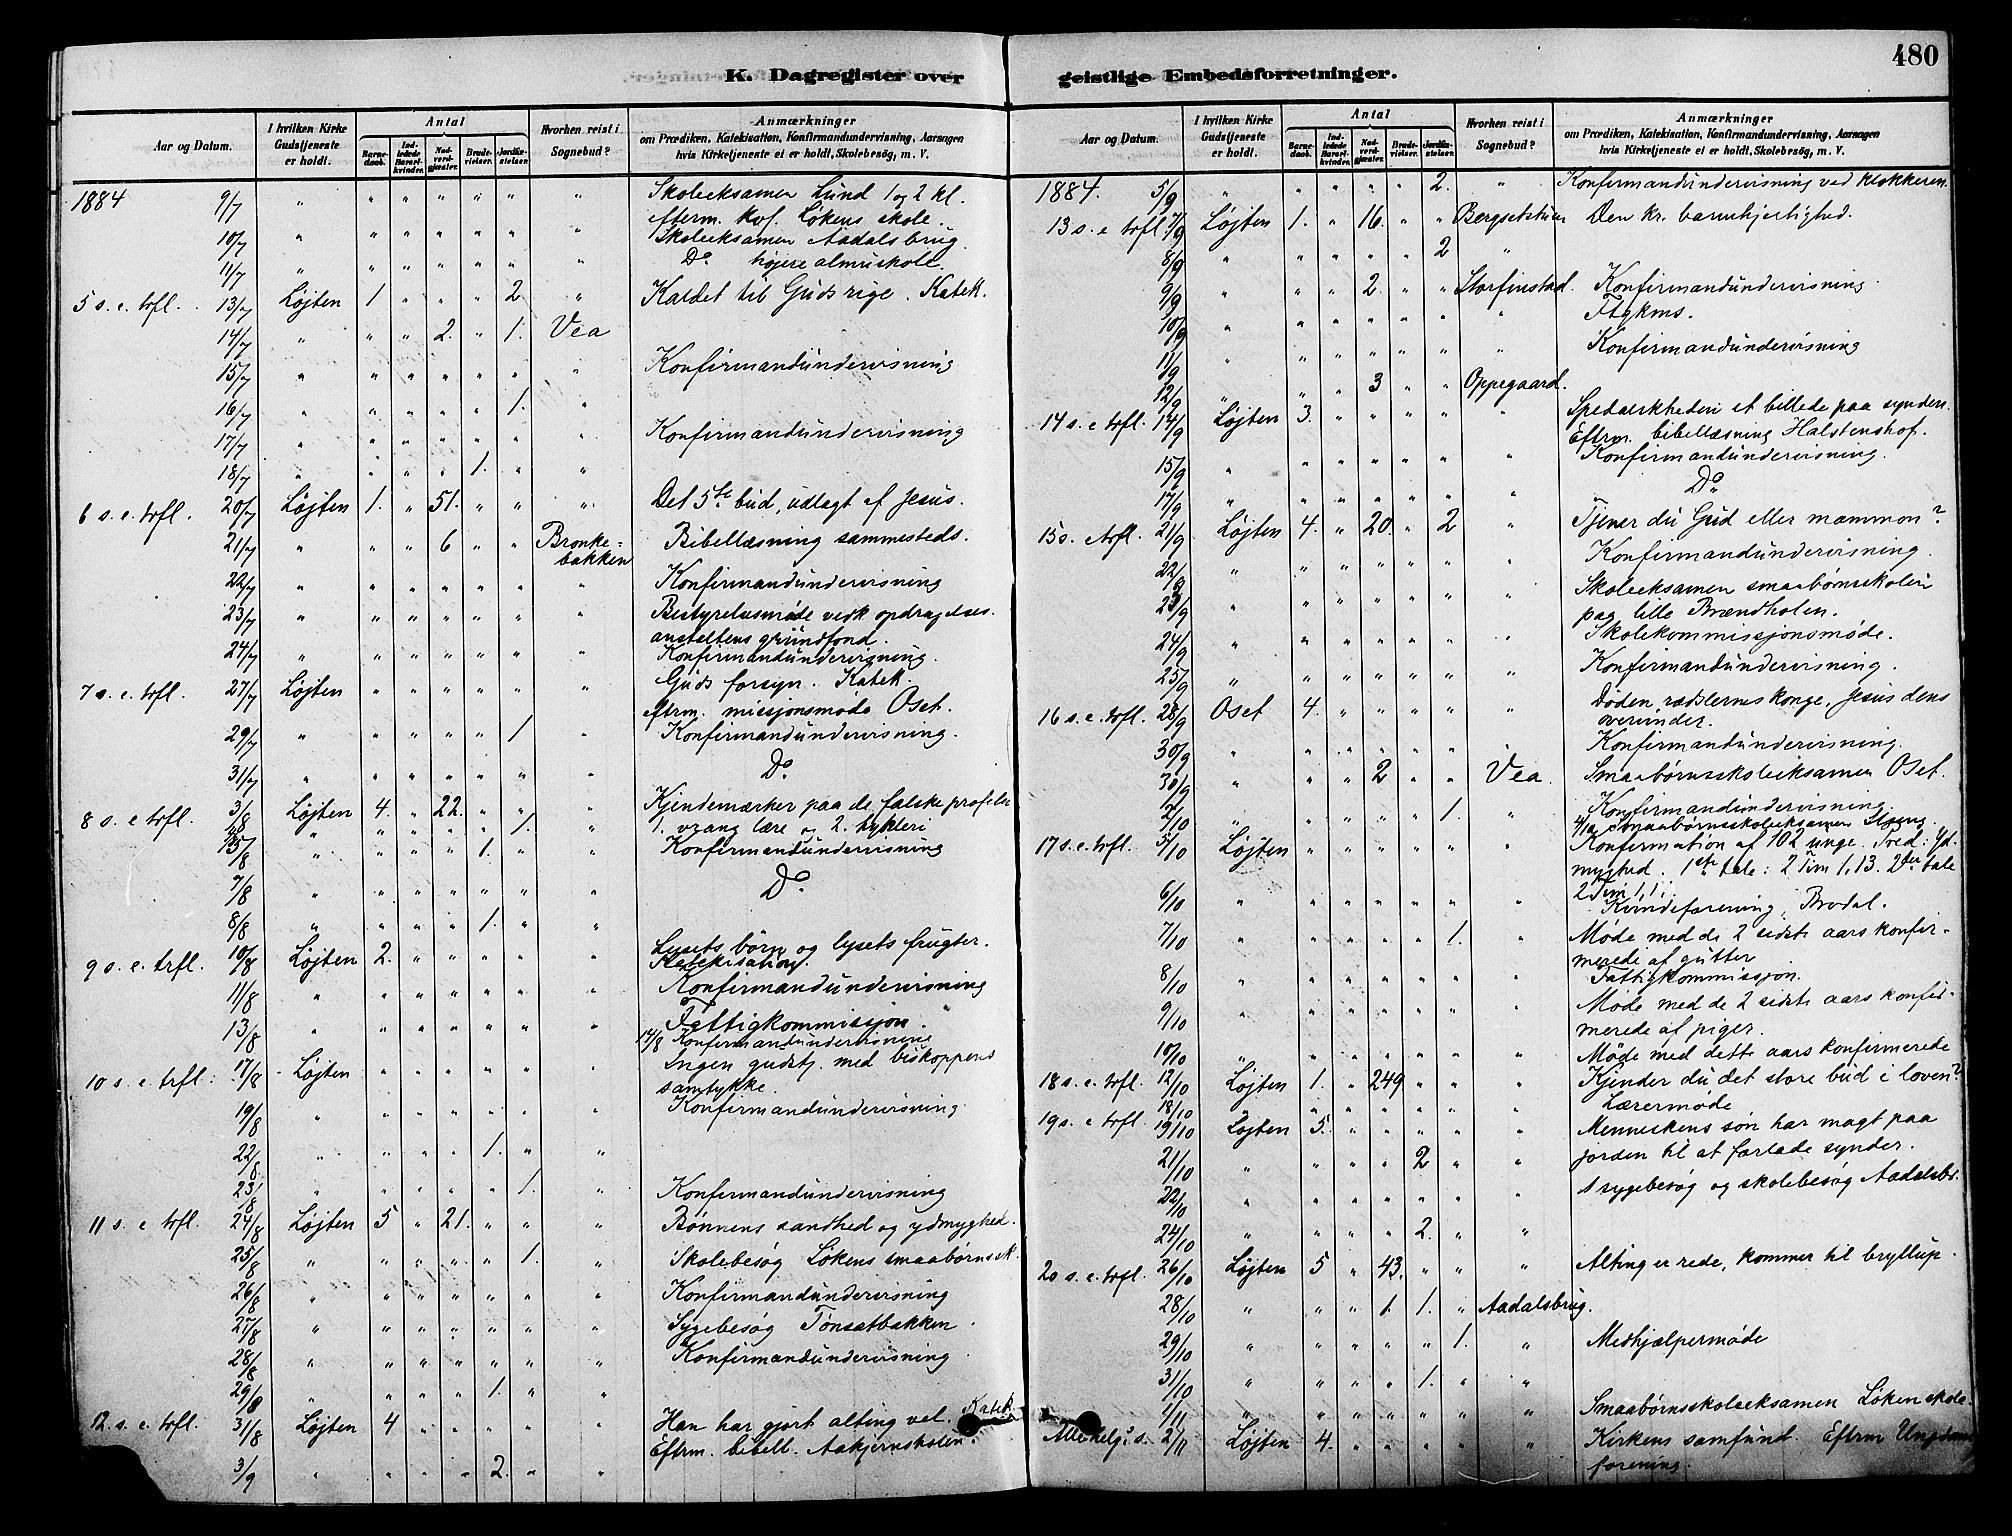 480
K. Dagregister over geistlige Embedsforretninger.
Aar og Datum. I hvilken Kirke Gudstjeneste er holdt. Antal Barnedaab. Indledede Barselkvinder. Nadverdgjæster. Brudevielser. Jordfæstelser. Hvorhen reist i Sognebud? Anmærkninger om Prædiken, Katekisation, Konfirmandundervisning, Aarsagen hvis Kirketjeneste ei er holdt, Skolebesög, m. V.
1884 9/7 " " " " " " " Skoleeksamen Lund 1 og 2 kl.
efterm. Kof. Løkens skole.
10/7 " " " " " " " Skoleeksamen Aadalsbrug
11/7 " " " " " " " Do højere almuskole
5 s. e. trfl. 13/7 Løjten 1 " " " 2 " Kaldet til Guds rige. Katek.
14/7 " " " 2. " 1. Vea
15/7 " " " " " " " Konfirmandundervisning
16/7 " " " " " 1. "
17/7 " " " " " " " Konfirmandundervisning
18/7 " " " " 1. " "
6 s. e. trfl. 20/7 Løjten 1. " 51. " " " Det 5te bud, udlagt af Jesus.
21/7 " " " 6 " " Bronkebakken Bibellæsning sammesteds.
22/7 " " " " " " " Konfirmandundervisning
23/7 " " " " " " " Bestyrelsesmøde vedk opdragelses
anstaltens grundfond.
24/7 " " " " " " " Konfirmandundervisning.
7 s. e. trfl. 27/7 Løjten " " " " " " Guds forsyn. Katek.
eftrm. missjonsmøde Oset.
29/7 " " " " " 1 " Konfirmandundervisning.
31/7 " " " " " " " Do
8 s. e. trfl. 3/8 Løjten 4. " 22. " " " Kjendemærker paa de falske profeter
" " " " " 1. " 1. vrang lære og 2. hykleri
5/8 " " " " 1. " " Konfirmandundervisning
7/8 " " " " " " " Do
8/8 " " " " 1. " "
9 s. e. trfl. 10/8 Løjten 2. " " " " " Lysets børn og lysets frugter.
Katekisation.
11/8 " " " " " " " Konfirmandundervisning
13/8 " " " " " " " Fattigkommissjon.
14/8 Konfirmandundervisning
10 s. e. trfl. 17/8 Løjten " " " " " " Ingen gudstj. med biskoppens
samtykke.
19/8 " " " " " " " Konfirmandundervisning
22/8 " " " " 1. " "
23/8 " " " " " 1. " Konfirmandundervisning
11 s. e. trfl. 24/8 Løjten 5 " 21. " " " Bønnens sandhed og ydmyghed.
25/8 " " " " " 1. " Skolebesøg Løkens smaabørnssk.
26/8 " " " " " " " Konfirmandundervisning
27/8 " " " " " " " Sygebesøg Tønsætbakken.
28/8 " " " " " " " Konfirmandundervisning.
29/8 " " " " 1. " "
12. s. e. trfl. 31/8 Løjten 4 " " " " " Han har gjort alting vel. Katek.
Eftrm. bibell. Aakjernskolen.
3/9 " " " " 2. " "
Aar og Datum. I hvilken Kirke Gudstjeneste er holdt. Antal Barnedaab. Indledede Barselkvinder. Nadverdgjæster. Brudevielser. Jordfæstelser. Hvorhen reist i Sognebud? Anmærkninger om Prædiken, Katekisation, Konfirmandundervisning, Aarsagen hvis Kirketjeneste ei er holdt, Skolebesög, m. V.
1884. 5/9 " " " " " 2. " Konfirmandundervisning ved klokkeren.
13 s. e trfl. 7/9 Løjten 1. " 16. " " Bergsetstuen Den kr. barmhjertighed.
8/9 " " " " " 2 "
9/9 " " " 2. " " Storfinstad. Konfirmandundervisning.
10/9 " " " " " " " Ftgkms.
11/9 " " " " " " " Konfirmandundervisning
12/9 " " " 3 " " Oppegaard.
14 s. e trfl. 14/9 Løjten 3. " " " " " Spedalskheden et billede paa synden.
Eftrm. bibellæsning Halstenshof.
15/9 " " " " " " " Konfirmandundervisning.
17/9 " " " " " " " Do
15 s. e trfl. 21/9 Løjten 4. " 20. " 2 " Tjener du Gud eller mammon?
22/9 " " " " " " " Konfirmandundervisning.
23/9 " " " " " " " Skoleeksamen smaabørnsskolen
paa lille Brændholen.
24/9 " " " " " " " Skolekommissjonsmøde.
25/9 " " " " " " " Konfirmandundervisning.
16 s. e. trfl. 28/9 Oset 4. " " " " " Døden rædslernes konge, Jesus dens
overvinder.
30/9 " " " " " " " Konfirmandundervisning.
30/9 " " " 2 " " Vea. Smaabørnsskoleeksamen Oset.
2/10 " " " " " 1. " Konfirmandundervisning.
4/10 Smaabørnsskoleeksamen
17 s. e. trfl. 5/10 Løjten " " " " " " Konfirmation af 102 unge. Præd: Yd-
myghed. 1ste tale: 2 Tim 1,13. 2den tale
2 Tim 1,1
6/10 " " " " " " " Kvindeforening, Brodal.
7/10 " " " " " 1. " Møde med de 2 sidste aars konfir-
merede af gutter
8/10 " " " " " " " Fattigkommissjon.
9/10 " " " " " " " Møde med de 2 sidste aars konfir-
merede af piger.
10/10 " " " " " " " Møde med dette aars konfirmerede
18 s. e. trfl. 12/10 Løjten 1. " 249 " " " Kjender du det store bud i loven?
18/10 " " " " " " " Lærermøde
19 s. e trfl. 19/10 Løjten 5. " " " " " Menneskens søn har magt paa
jorden til at forlade synder.
21/10 " " " " 2 " "
22/10 " " " " " " " 1 sygebesøg og skolebesøg Aadalsbr.
24/10 " " " " 2. " "
20 s. e. trfl. 26/10 Løjten 5 " 43. " " " Alting er rede, kommer til bryllup.
28/10 " " " 1. 1. " Aadalsbrug.
29/10 " " " " " 1. " Medhjælpermøde
31/10 " " " " 1. " "
1/11 " " " " " " " Smaabørnsskoleeksamen Løken skole
Allehelg. s. 2/11 Løjten 4. " " " " " Kirkens samfund. Eftrm Ungdoms
forening.